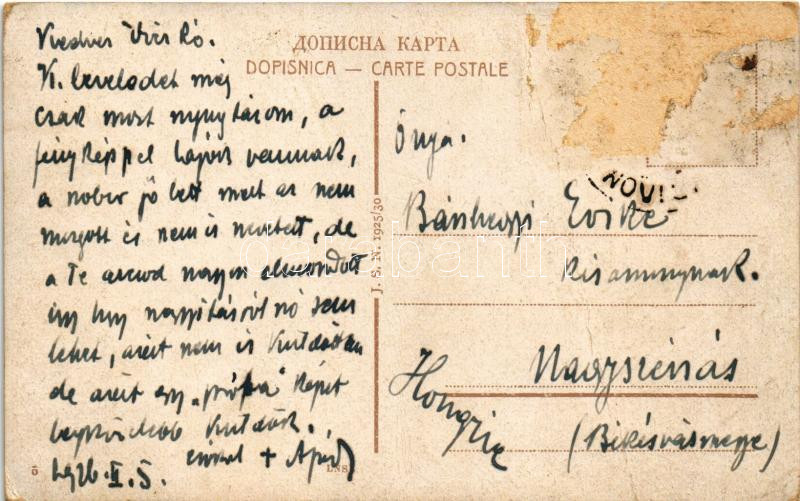 Kedves Vicikó.
K. leveledet még
csak most nyugtázom, a
fényképpel bajok vannak,
a nober jó lett mert az nem
mozgott és nem is nevetett, de
a Te arcod nagyon elmosódott
így hogy nagyításról szó sem
lehet, azért nem is küldöttem
de azért egy „próba" képet
legközelebb küldök.
1926. II. 5. csókol + Apád
ДОПИСНА КАРТА
DOPISNICA — CARTE POSTALE
J. S. N. 1925/30
NOVI
Őnga.
Bánhegyi Evike
kisasszonynak.
Nagyszénás
Hongrie
(Békésvármegye)